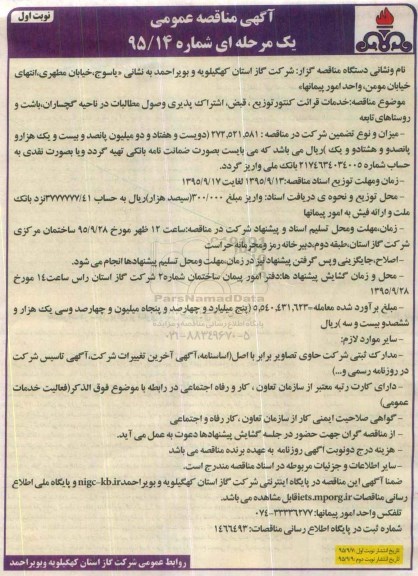 آگهی مناقصه عمومی
نوبت اول
یک مرحله ای شماره ۹۵/۱۴
نام ونشانی دستگاه مناقصه گزار: شرکت گاز استان کهگیلویه و بویراحمد به نشانی «یاسوج، خیابان مطهری، انتهای
خیابان مومن، واحد امور پیمانها»
موضوع مناقصه: خدمات قرائت کنتور، توزیع قبض، اشتراک پذیری وصول مطالبات در ناحیه گچساران، باشت و
روستاهای تابعه
- میزان و نوع تضمین شرکت در مناقصه: ۲۷۲,۵۲۱,۵۸۱ (دویست و هفتاد و دو میلیون پانصد و بیست و یک هزار و
پانصد و هشتاد و یک) ریال می باشد که می بایست بصورت ضمانت نامه بانکی تهیه گردد ویا بصورت نقدی به
حساب شماره ۲۱۷۴۶۳۴۰۳۴۰۰۵ بانک ملی واریز گردد.
- زمان ومهلت توزیع اسناد مناقصه: ۱۳۹۵/۹/۱۳ لغایت ۱۳۹۵/۹/۱۷
- محل توزیع و نحوه ی دریافت اسناد: واریز مبلغ ۳۰۰/۰۰۰ (سیصد هزار) ریال به حساب ۳۷۷۷۷۷۷/۴۱ نزد بانک
ملت و ارائه فیش به امور پیمانها
- زمان، مهلت ومحل تسلیم اسناد و پیشنهاد شرکت در مناقصه: ساعت ۱۲ ظهر مورخ ۹۵/۹/۲۸ ساختمان مرکزی
شرکت گاز استان، طبقه دوم، دبیرخانه رمز ومحرمانه حراست
- اصلاح، جایگزینی وپس گرفتن پیشنهاد نیز در زمان، مهلت ومحل تسلیم پیشنهادها انجام می شود.
- محل و زمان گشایش پیشنهاد ها: دفتر امور پیمان ساختمان شماره ۲ شرکت گاز استان راس ساعت ۱۴ مورخ
۱۳۹۵/۹/۲۸
- مبلغ برآورد شده معامله= ۵,۵۴۰,۴۳۱,۶۲۳ (پنج میلیارد و چهارصد و پنجاه میلیون و چهارصد وسی یک هزار و
ششصدو بیست و سه) ریال
- سایر موارد لازم:
- مدارک ثبتی شرکت حاوی تصاویر برابر با اصل (اساسنامه، آگهی آخرین تغییرات شرکت، آگهی تاسیس شرکت
در روزنامه رسمی و...)
- دارای کارت رتبه معتبر از سازمان تعاون، کار و رفاه اجتماعی در رابطه با موضوع فوق الذکر (فعالیت خدمات
عمومی)
- گواهی صلاحیت ایمنی کار از سازمان تعاون، کار رفاه و اجتماعی
- از مناقصه گران جهت حضور در جلسه گشایش پیشنهادها دعوت به عمل می آید.
- هزینه درج دونوبت آگهی روزنامه به عهده برنده مناقصه می باشد
- سایر اطلاعات و جزئیات مربوطه در اسناد مناقصه مندرج است.
ضمنا آگهی این مناقصه در پایگاه اینترنتی شرکت گاز استان کهگیلویه و بویراحمد nigc-kb.ir و پایگاه ملی اطلاع
رسانی مناقصات iets.mporg.ir قابل مشاهده می باشد.
تلفکس واحد امور پیمانها: ۳۳۳۳۶۲۷۷-۰۷۴
شماره ثبت در پایگاه اطلاع رسانی مناقصات: ۱۴۶۶۴۹۳
تاریخ انتشار نوبت اول: ۹۵/۹/۷
تاریخ انتشار نوبت دوم: ۹۵/۹/۹
روابط عمومی شرکت گاز استان کهگیلویه وبویراحمد
ParsNamadData
پایگاه اطلاع رسانی مناقصه و مزایده
۰۲۱-۸۸۳۴۹۶۷۰-۵